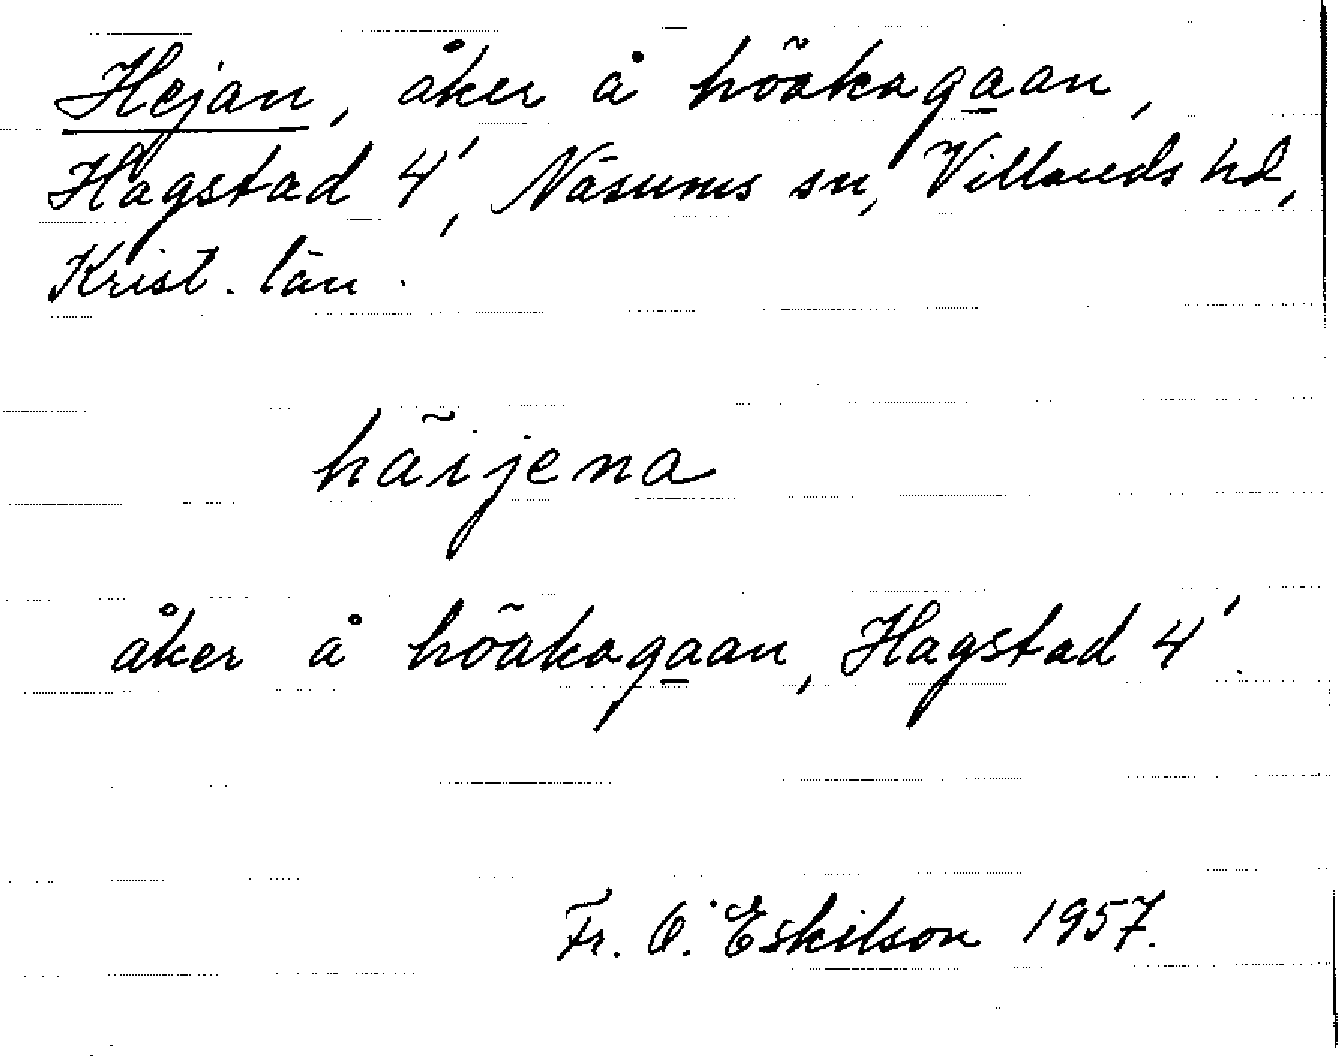 Hejan, åker å höakagaan,
Hagstad 4', Näsums sn, Villands hd,
Krist. län.
häijena
åker å höakagaan, Hagstad 4'.
Fr. O. Eskilson 1957.